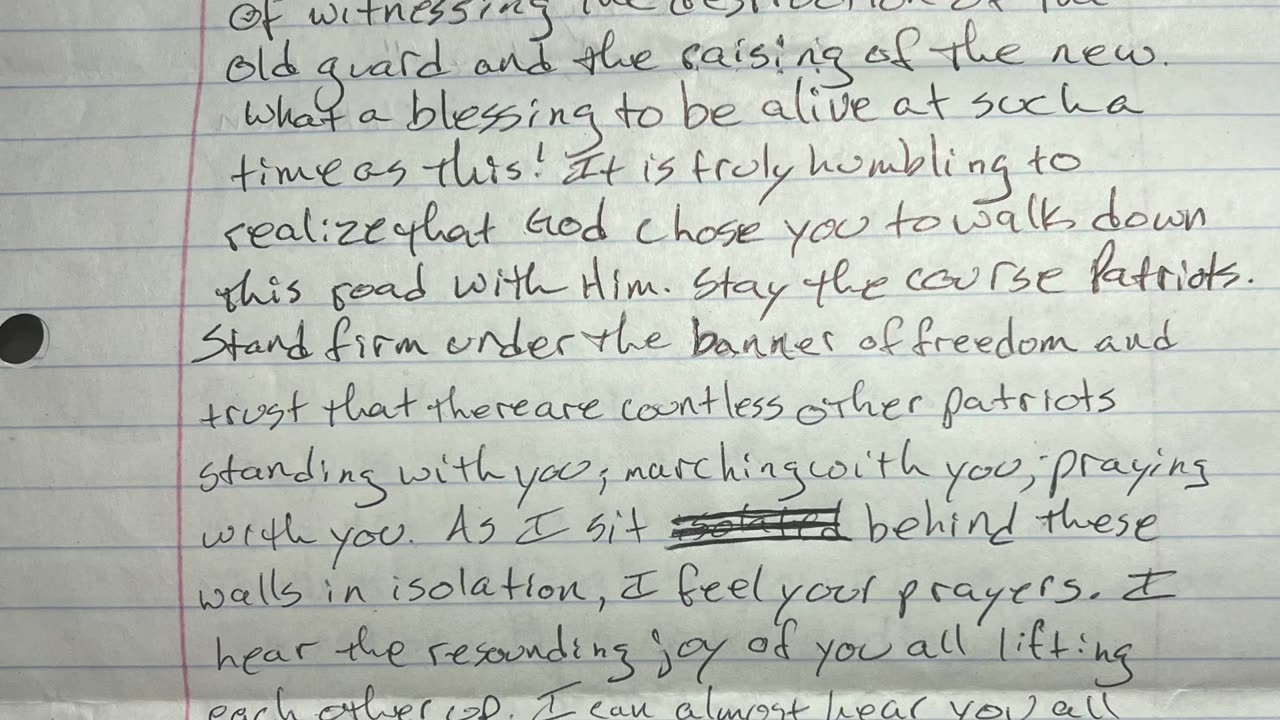 Of witnessing the destruction of the
old guard and the raising of the new.
What a blessing to be alive at such a
time as this! It is truly humbling to
realize that God chose you to walk down
this road with Him. Stay the course Patriots.
Stand firm under the banner of freedom and
trust that there are countless other patriots
standing with you; marching with you; praying
with you. As I sit isolated behind these
walls in isolation, I feel your prayers. I
hear the resounding joy of you all lifting
each other up. I can almost hear you all